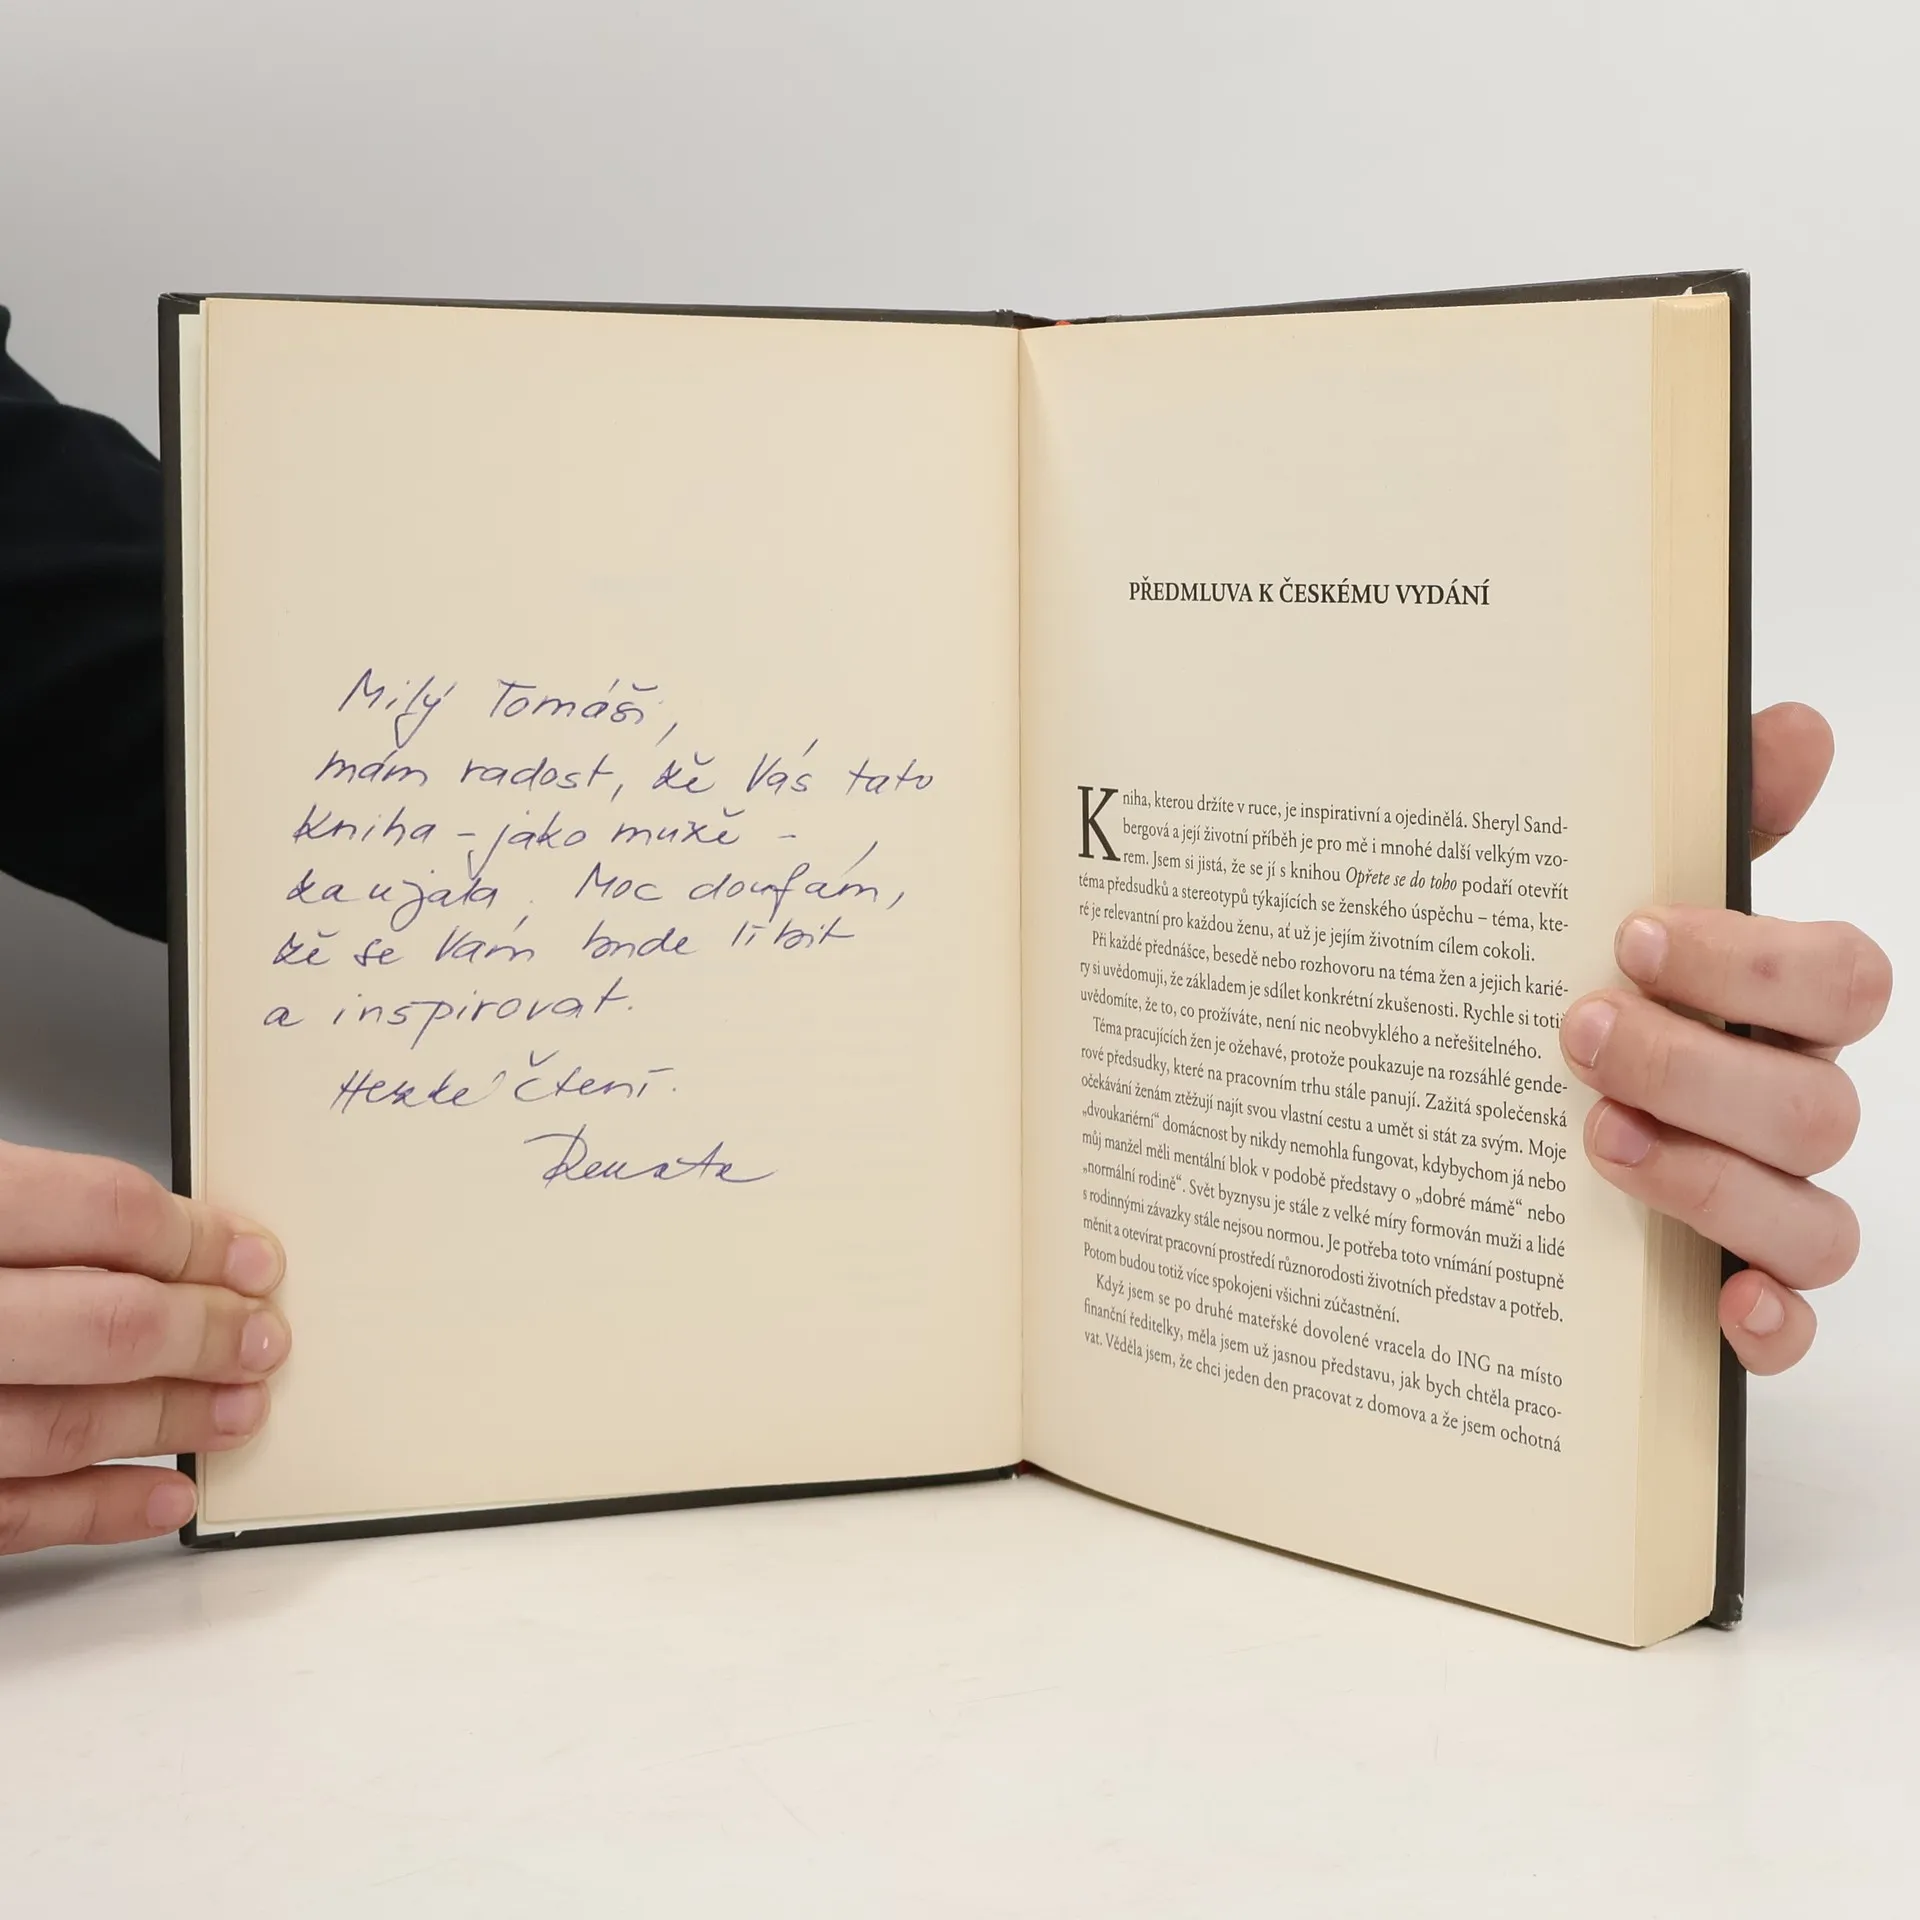 Milý Tomáši,
mám radost, že Vás tato
kniha – jako muže –
zaujala. Moc doufám,
že se Vám bude líbit
a inspirovat.
Hezké čtení.
Renata
PŘEDMLUVA K ČESKÉMU VYDÁNÍ
Kniha, kterou držíte v ruce, je inspirativní a ojedinělá. Sheryl Sand-
bergová a její životní příběh je pro mě i mnohé další velkým vzo-
rem. Jsem si jistá, že se jí s knihou Opřete se do toho podaří otevřít
téma předsudků a stereotypů týkajících se ženského úspěchu – téma, kte-
ré je relevantní pro každou ženu, ať už je jejím životním cílem cokoli.
Při každé přednášce, besedě nebo rozhovoru na téma žen a jejich karié-
ry si uvědomuji, že základem je sdílet konkrétní zkušenosti. Rychle si totiž
uvědomíte, že to, co prožíváte, není nic neobvyklého a neřešitelného.
Téma pracujících žen je ožehavé, protože poukazuje na rozsáhlé gende-
rové předsudky, které na pracovním trhu stále panují. Zažitá společenská
očekávání ženám ztěžují najít svou vlastní cestu a umět si stát za svým. Moje
„dvoukariérní“ domácnost by nikdy nemohla fungovat, kdybychom já nebo
můj manžel měli mentální blok v podobě představy o „dobré mámě“ nebo
„normální rodině“. Svět byznysu je stále z velké míry formován muži a lidé
s rodinnými závazky stále nejsou normou. Je potřeba toto vnímání postupně
měnit a otevírat pracovní prostředí různorodosti životních představ a potřeb.
Potom budou totiž více spokojeni všichni zúčastnění.
Když jsem se po druhé mateřské dovolené vracela do ING na místo
finanční ředitelky, měla jsem už jasnou představu, jak bych chtěla praco-
vat. Věděla jsem, že chci jeden den pracovat z domova a že jsem ochotná